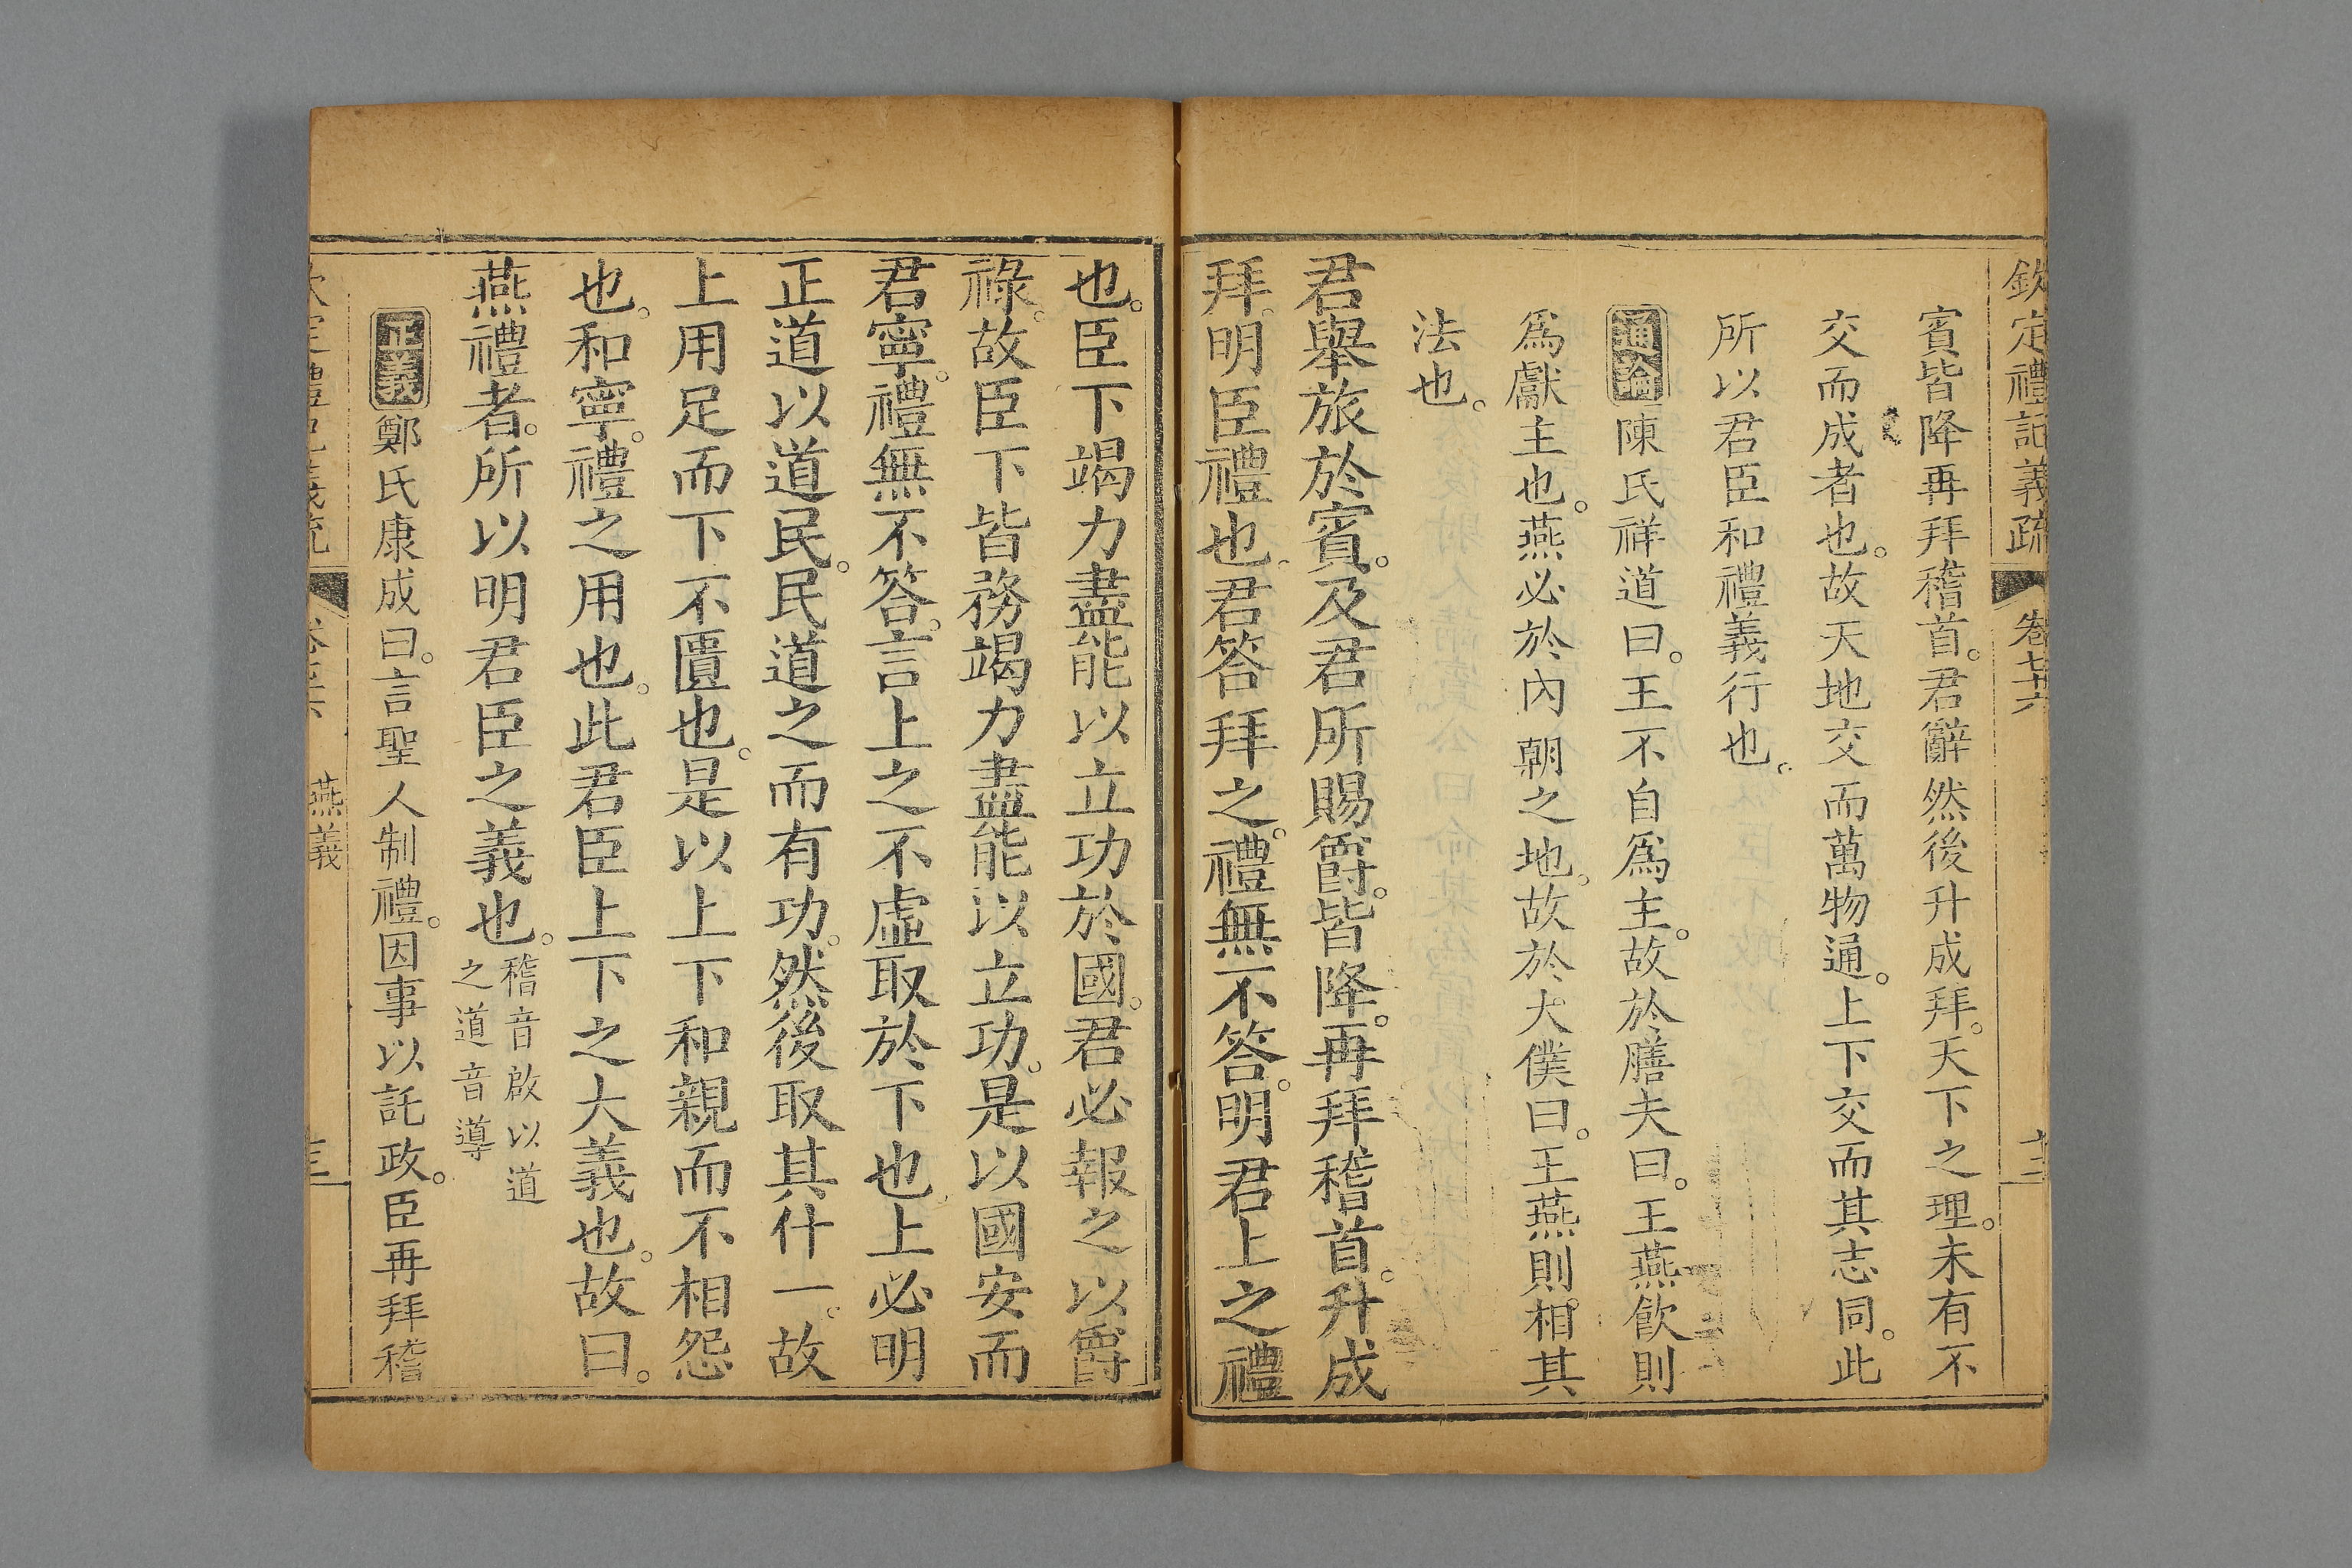 欽定禮記義疏 卷七十六 十二
賓皆降再拜稽首。君辭然後升成拜。天下之理。未有不
交而成者也。故天地交而萬物通。上下交而其志同。此
所以君臣和禮義行也。
通論 陳氏祥道曰。王不自爲主。故於膳夫曰。王燕飲則
爲獻主也。燕必於內朝之地。故於大僕曰。王燕則。相其
法也。
君舉旅於賓。及君所賜爵。皆降。再拜稽首。升成
拜。明臣禮也。君答拜之。禮無不答。明君上之禮
也。臣下竭力盡能以立功於國。君必報之以爵
祿。故臣下皆務竭力盡能以立功。是以國安而
君寧。禮無不答。言上之不虛取於下也。上必明
正道以道民。民道之而有功。然後取其什一。故
上用足而下不匱也。是以上下和親而不相怨
也。和寧。禮之用也。此君臣上下之大義也。故曰。
燕禮者。所以明君臣之義也。
稽音啟以道
之道音導
正義 鄭氏康成曰。言聖人制禮。因事以託政。臣再拜稽
燕義